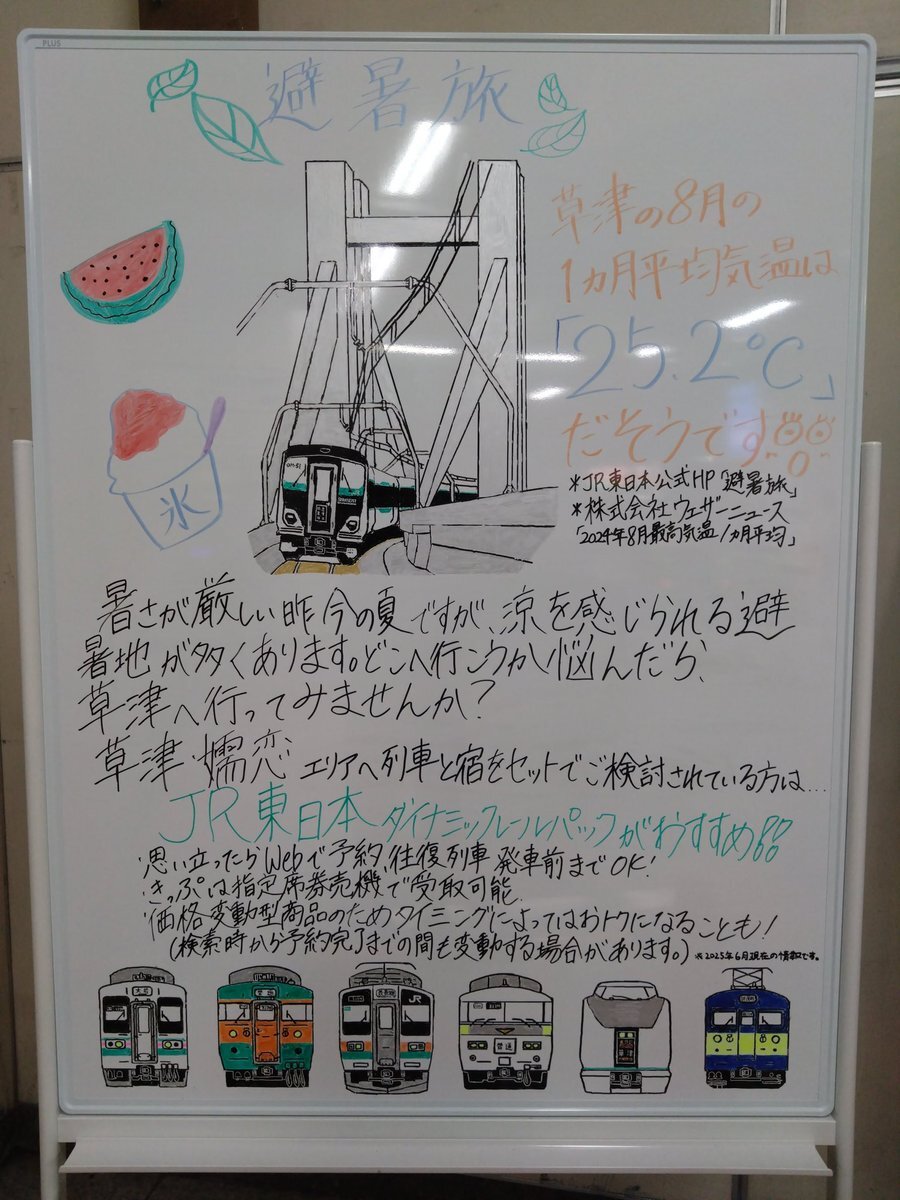 PLUS
避暑旅
草津の8月の
1ヵ月平均気温は
「25.2℃」
だそうです!!
*JR東日本公式HP「避暑旅」
*株式会社ウェザーニュース
「2024年8月最高気温1ヵ月平均」
氷
暑さが厳しい昨今の夏ですが、涼を感じられる避
暑地が多くあります。どこへ行こうか悩んだら、
草津へ行ってみませんか?
草津・嬬恋エリアへ列車と宿をセットでご検討されている方は…
JR東日本ダイナミックレールパックがおすすめ!!
・思い立ったらWebで予約,往復列車発車前までOK!
・きっぷは指定席券売機で受取可能.
・価格変動型商品のためタイミングによってはおトクになることも!
(検索時から予約完了までの間も変動する場合があります。)
※2025年6月現在の情報です。
JR
普通
草津